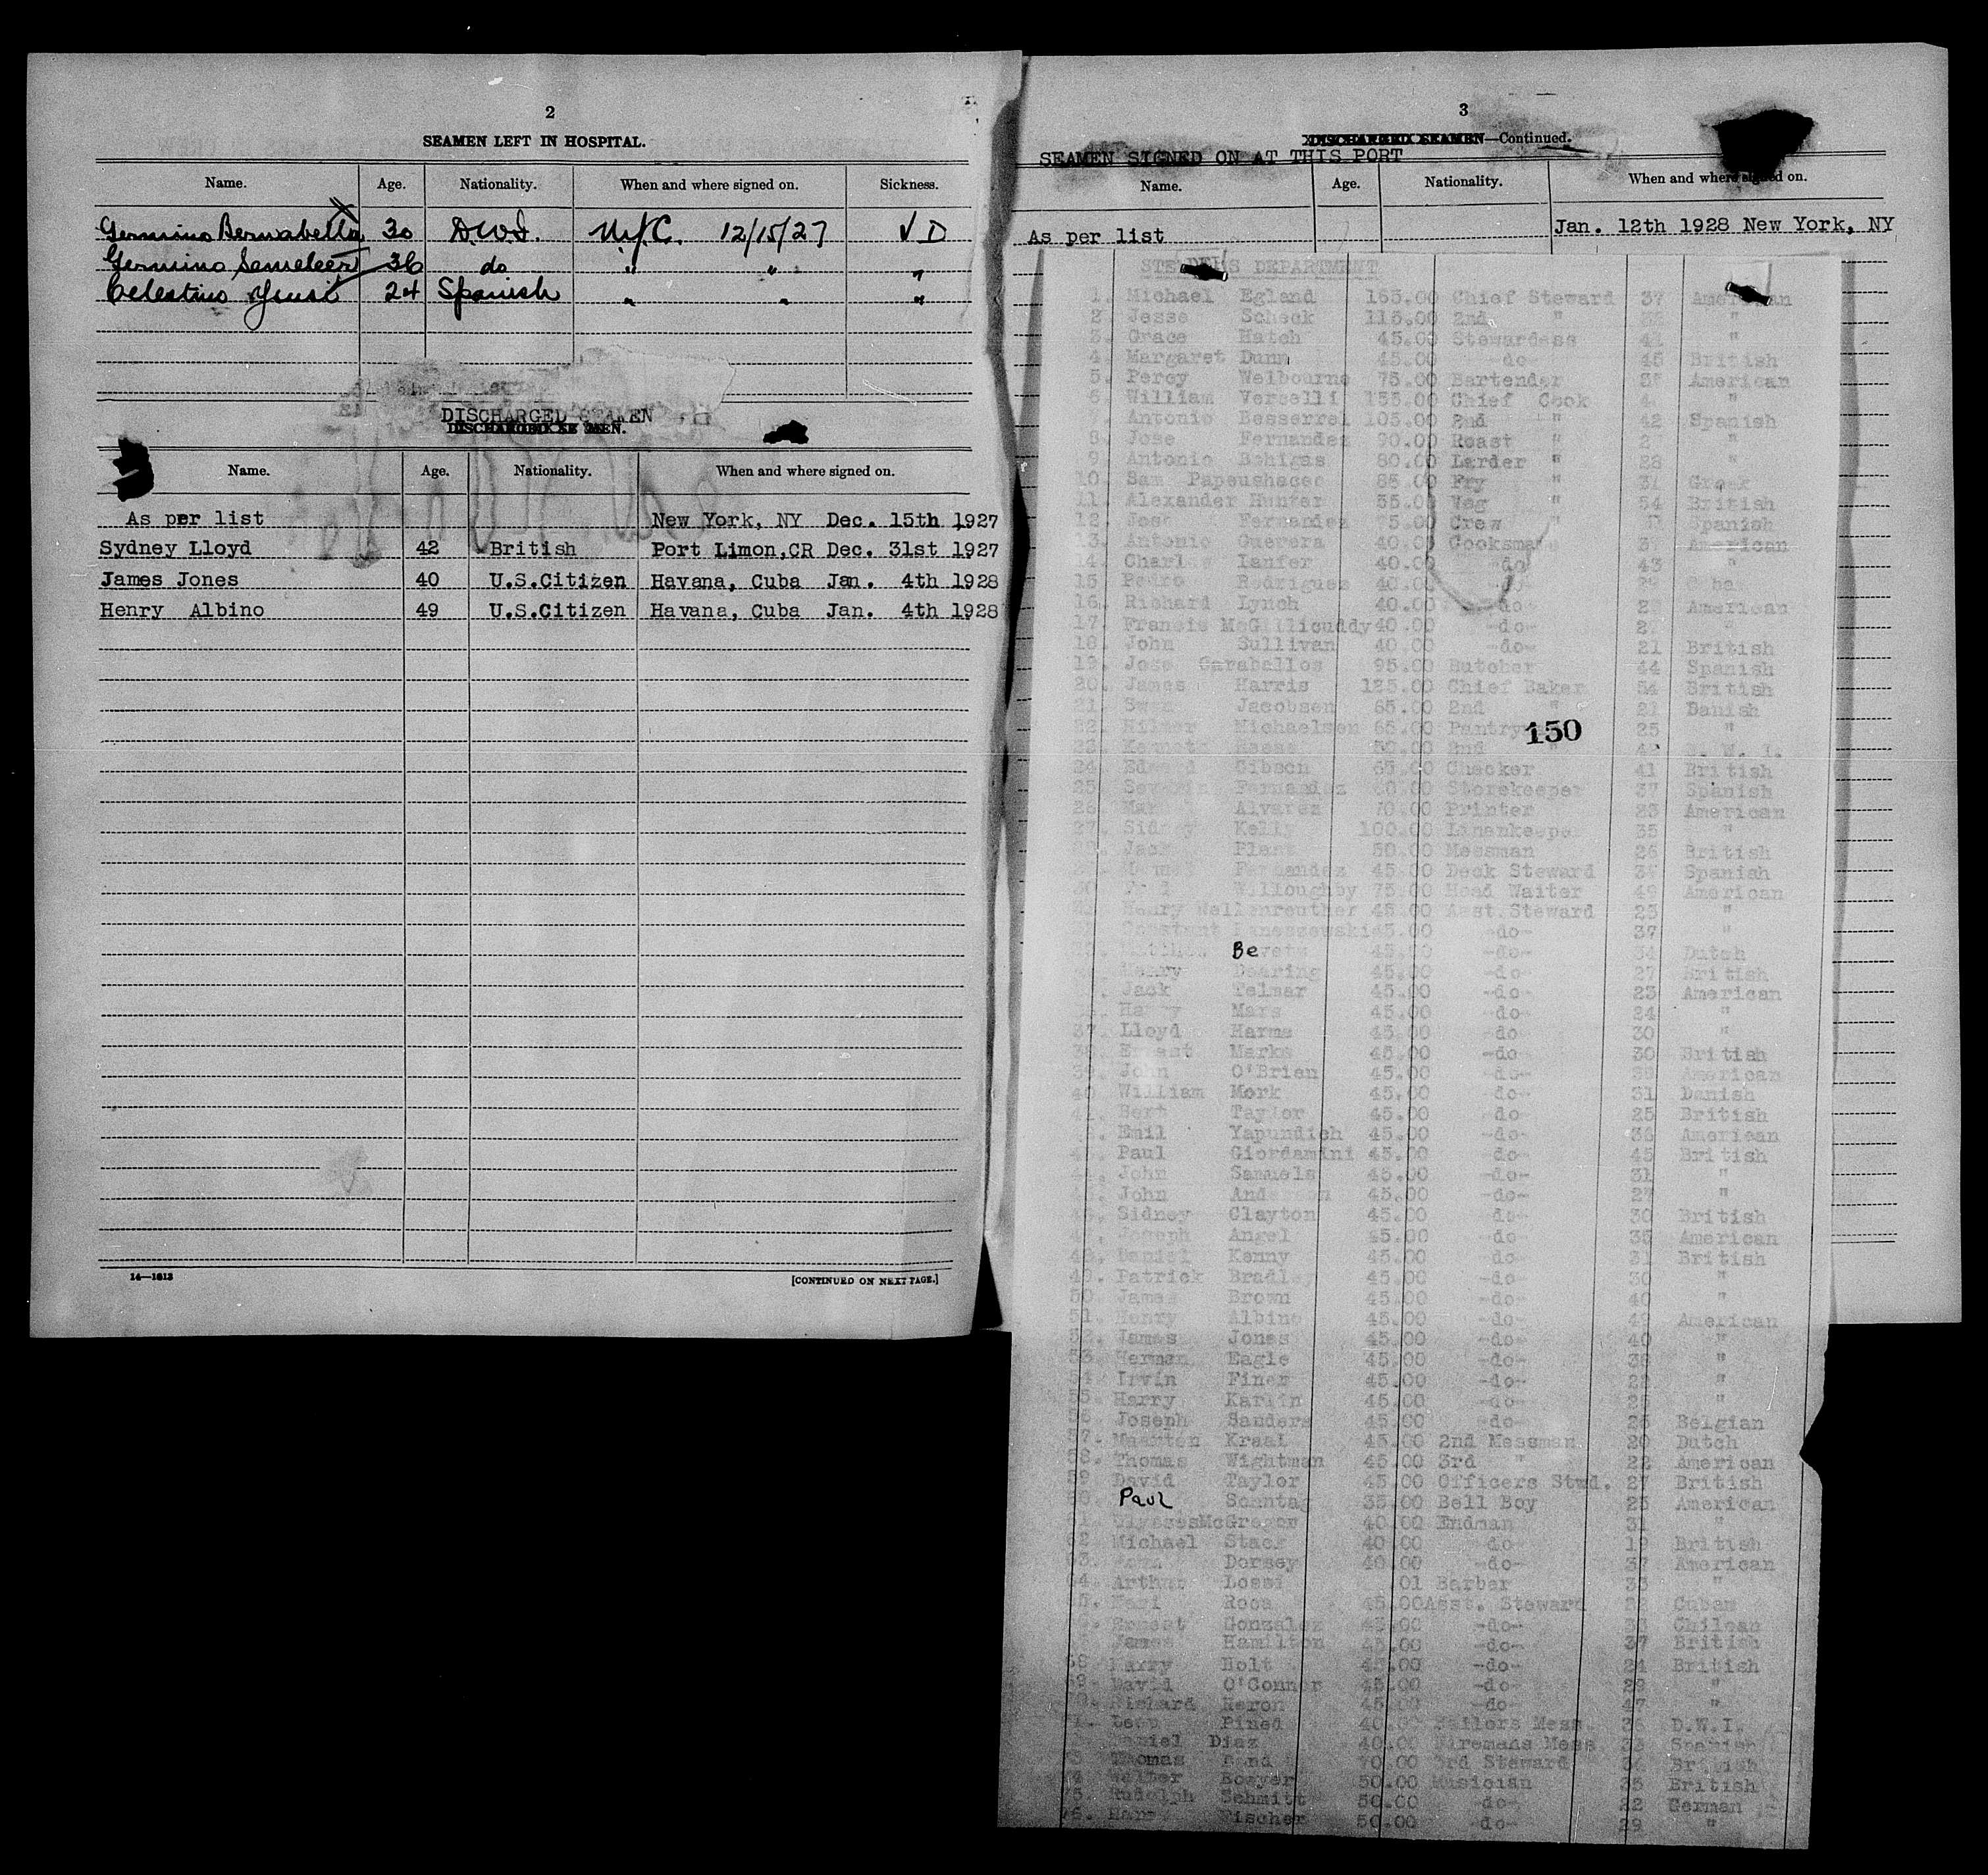 2
SEAMEN LEFT IN HOSPITAL.
Name. Age. Nationality. When and where signed on. Sickness.
Germino Bernabella 30 D.W.I. N.Y.C. 12/15/27 VD
Germino 36 do " " "
Celestino 24 Spanish " " "
DISCHARGED SEAMEN
Name. Age. Nationality. When and where signed on.
As per list New York, NY Dec. 15th 1927
Sydney Lloyd 42 British Port Limon,CR Dec. 31st 1927
James Jones 40 U.S.Citizen Havana, Cuba Jan. 4th 1928
Henry Albino 49 U.S.Citizen Havana, Cuba Jan. 4th 1928
14—1613 [CONTINUED ON NEXT PAGE.]
3
DISCHARGED SEAMEN—Continued.
SEAMEN SIGNED ON AT THIS PORT
Name. Age. Nationality. When and where signed on.
As per list Jan. 12th 1928 New York, NY
DEPARTMENT
1. Michael Egland 165.00 Chief Steward 37 American
2. Jesse Scheck 115.00 2nd " "
3. Grace Hatch 45.00 Stewardess "
4. Margaret Dunn 45.00 -do- 45 British
5. Percy Welbourne 75.00 Bartender American
6. William Vercelli 155.00 Chief Cook "
7. Antonio Besserrel 105.00 2nd " 42 Spanish
8. Jose Fernandez 90.00 Roast " "
9. Antonio Bohigas 80.00 Larder " 28 "
10. Sam 85.00 Fry " 31 Greek
11. Alexander Hunter 55.00 Veg " 54 British
12. Jose Fernandez Crew " Spanish
13. Antonio Guerera 40.00 American
14. Charles Laufer 40.00 -do- 43 "
15. Pedro Rodriguez 40.00 -do-
16. Richard Lynch 40.00 -do- American
17. Francis McGillicuddy 40.00 -do- "
18. John Sullivan 40.00 -do- 21 British
19. Jose Caraballos 95.00 Butcher 44 Spanish
20. James Harris 125.00 Chief Baker 54 British
21. Swen Jacobsen 85.00 2nd " 21 Danish
22. Hilmer Michaelsen 65.00 25 "
150
23. Kenneth 2nd "
24. Edward Gibson 65.00 Checker 41 British
25. Fernandez Storekeeper 37 Spanish
26. Alvarez 70.00 Printer 23 American
27. Sidney Kelly 100.00 Linenkeeper 35 "
28. Jack Plant 50.00 Messman 26 British
Fernandez 45.00 Deck Steward Spanish
30 Willoughby 75.00 Head Waiter 49 American
Henry Wellenreuther 45.00 Asst.Steward 23 "
45.00 -do- 37 "
Be 45.00 -do- 34 Dutch
Henry Dearing 45.00 -do- 27 British
Jack Telmar 45.00 -do- 23 American
Harry Mars 45.00 -do- 24 "
37. Lloyd Harms 45.00 -do- 30 "
38. Ernest Marks 45.00 -do- 30 British
39. John O'Brien 45.00 -do- American
40 William Mork 45.00 -do- 31 Danish
41. Bert Taylor 45.00 -do- 25 British
Emil Yapundich 45.00 -do- 36 American
Paul Giordamini 45.00 -do- 45 British
44. John Samuels 45.00 -do- 31 "
John Anderson 45.00 -do- 27 "
Sidney Clayton 45.00 -do- 30 British
Joseph Angel 45.00 -do- 35 American
48. Daniel Kenny 45.00 -do- 31 British
49. Patrick Bradley 45.00 -do- 30 "
50. James Brown 45.00 -do- 40 "
51. Henry Albino 45.00 -do- 49 American
52. James Jones 45.00 -do- 40 "
53. Herman Eagle 45.00 -do- 38 "
54. Irvin Finer 45.00 -do- "
55. Harry Karlin 45.00 -do- "
56. Joseph Sanders 45.00 -do- 26 Belgian
57. Maarten Kraal 45.00 2nd Messman 20 Dutch
58. Thomas Wightman 45.00 3rd " 22 American
59 David Taylor 45.00 Officers Stwd. 27 British
Paul Sonntag 35.00 Bell Boy 25 American
UlyssesMcGregor 40.00 Endman 31 "
62 Michael Stack 40.00 -do- 19 British
Dorsey 40.00 -do- 37 American
64. Arthur .01 Barber 33 "
Roca 45.00 Asst. Steward Cuban
Ernest Gonzalez 45.00 -do- Chilean
James Hamilton 45.00 -do- 37 British
68 Harry Holt 45.00 -do- 24 British
69 David O'Connor 45.00 -do- 29 "
Richard Heron 45.00 -do- 47 "
Pined 40.00 Sailors Mess. D.W.I.
Daniel Diaz 40.00 Firemans Mess Spanish
Thomas 70.00 3rd Steward British
Walter Bowyer 50.00 Musician 35 British
75. Rudolph Schmitt 50.00 -do- 22 German
76. Fischer 50.00 -do- 29 "